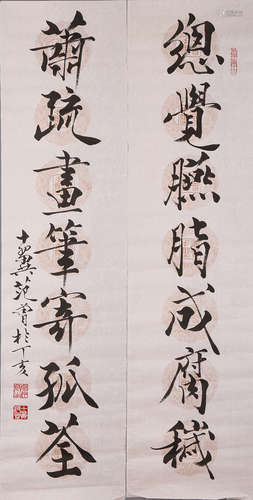 總覺臙脂成腐穢
蕭疏畫筆寄孤荃
十翼范曾於丁亥